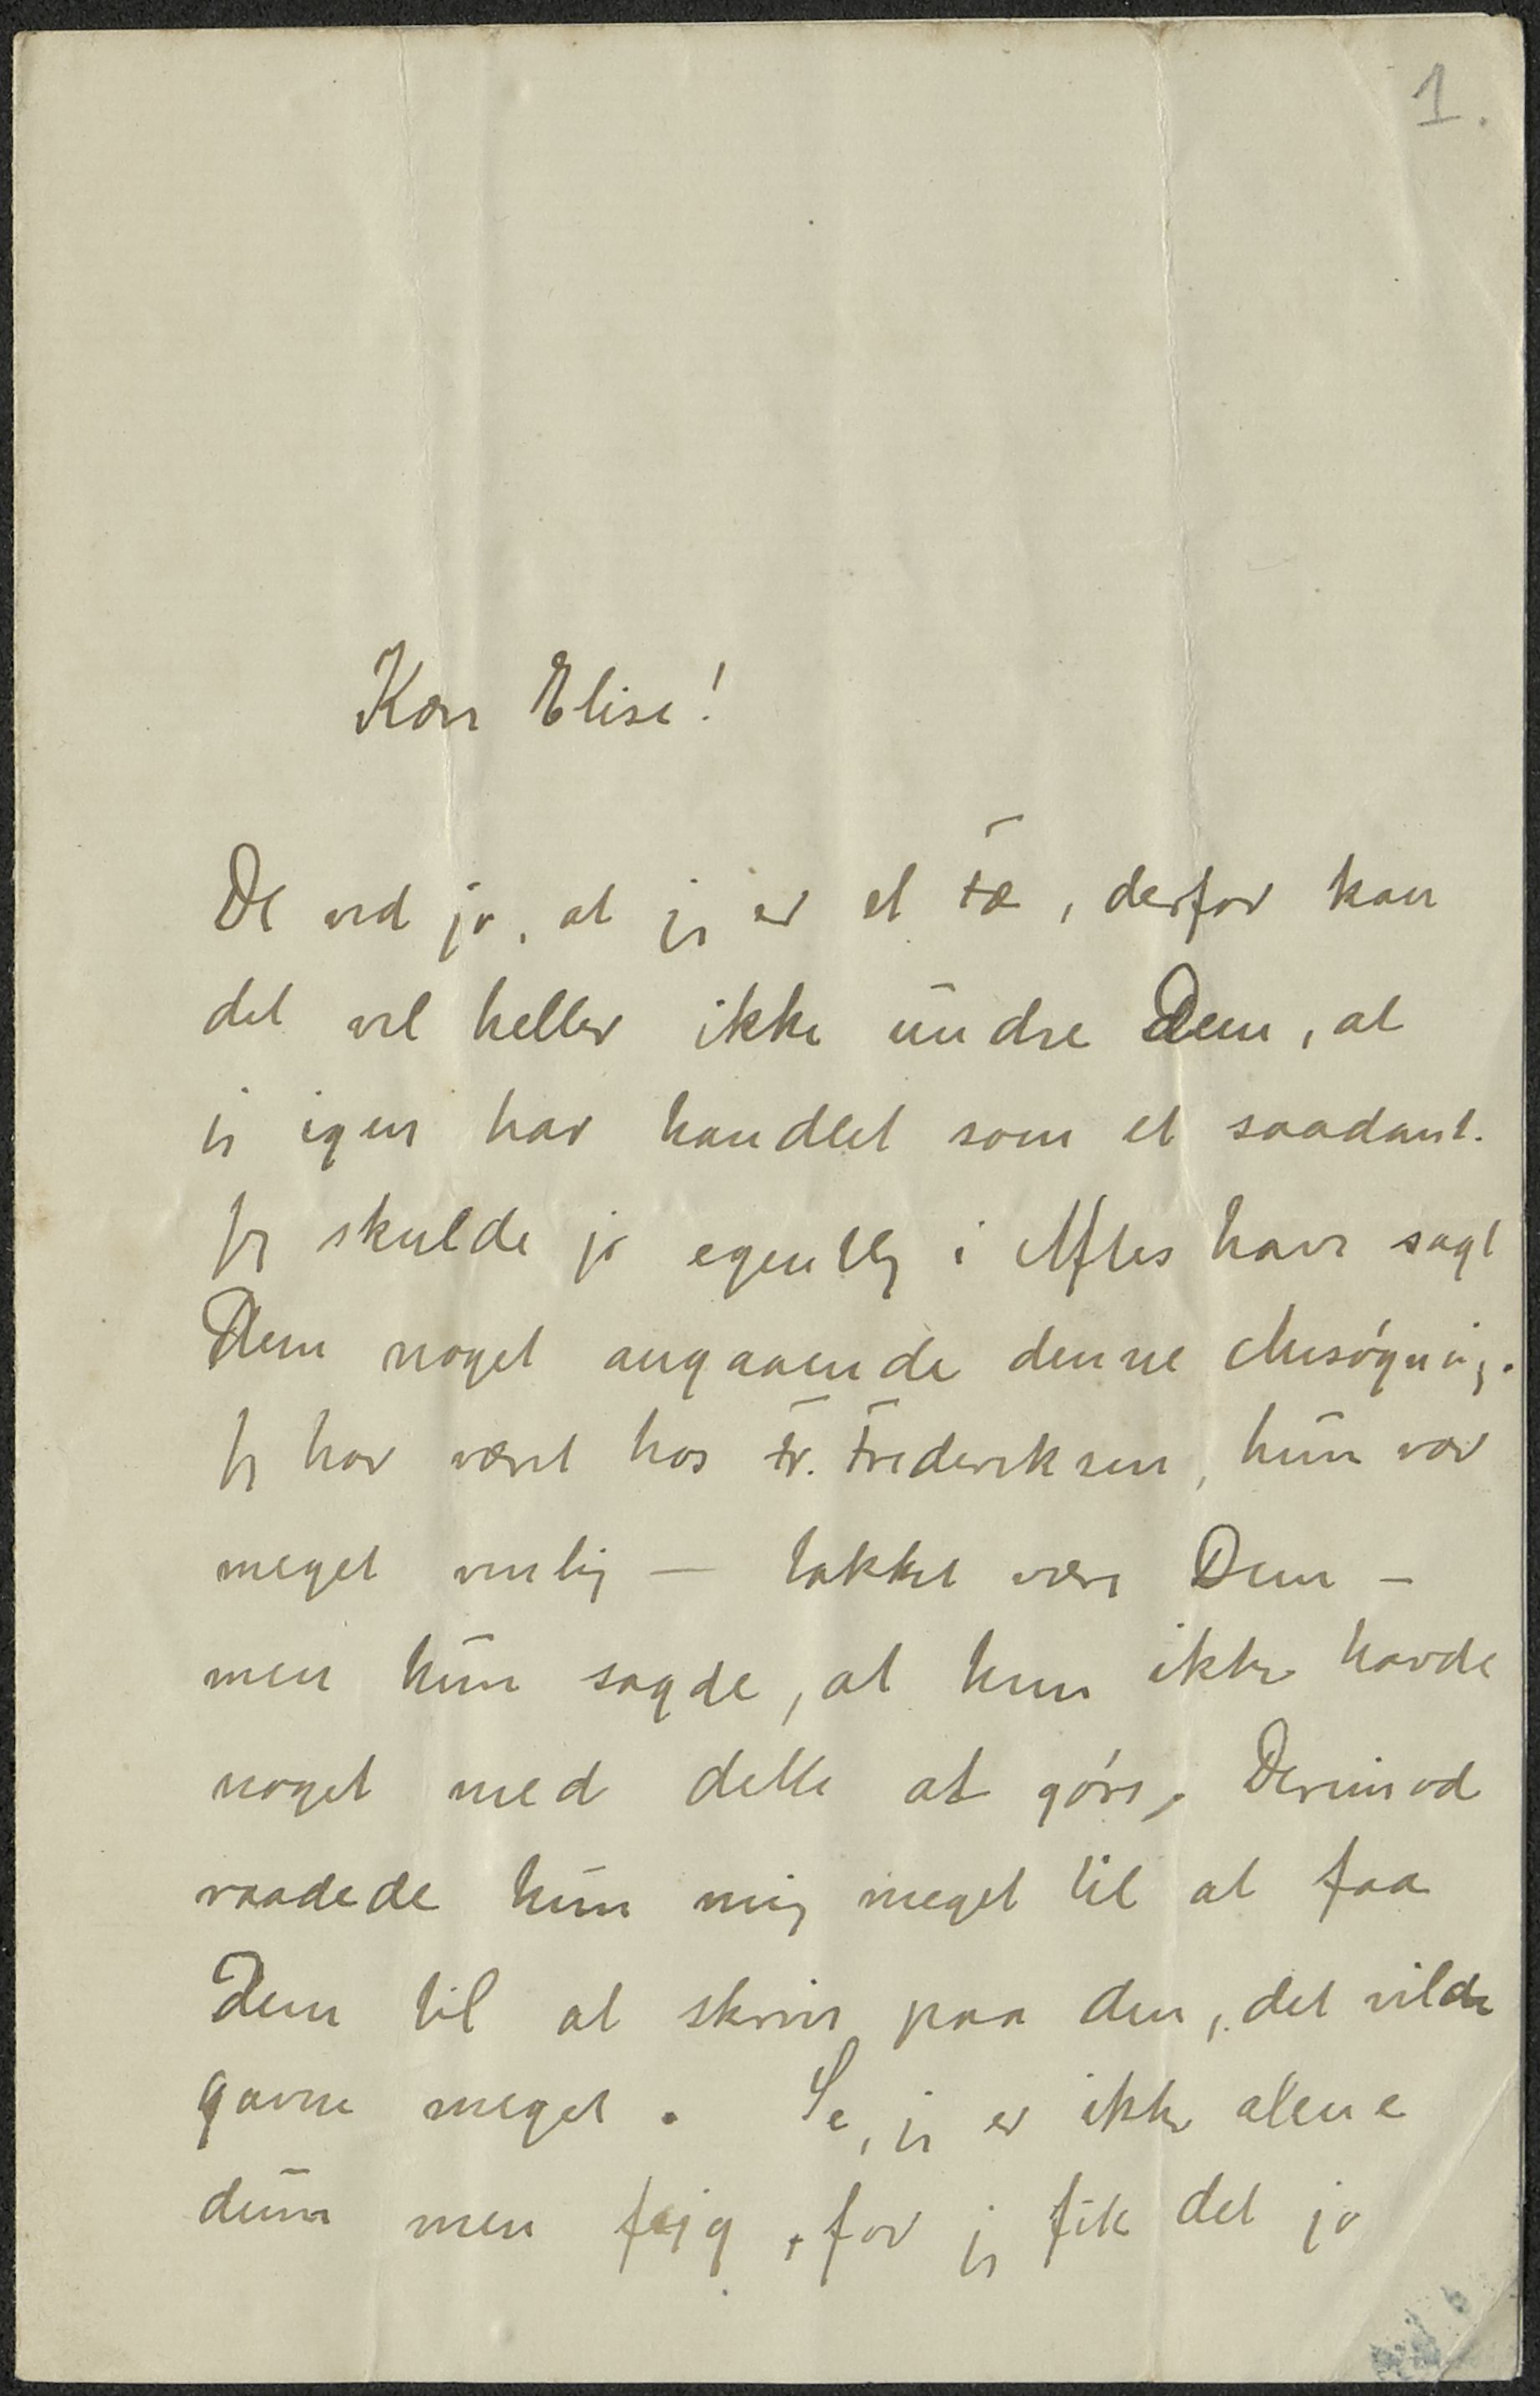 1.
Kære Elise!
De ved jo, at jeg er et Fæ, derfor kan
det vel heller ikke undre Dem, at
jeg igen har handlet som et saadant.
Jeg skulde jo egentlig i Aftes have sagt
Dem noget angaaende denne Ansøgning.
Jeg har været hos Fr. Frederiksen, hun var
meget venlig – takket være Dem –
men hun sagde, at hun ikke havde
noget med dette at gøre, Derimod
raadede hun mig meget til at faa
Dem til at skrive paa den, det vilde
gavne meget. Se, jeg er ikke alene
dum men fejg, for jeg fik det jo